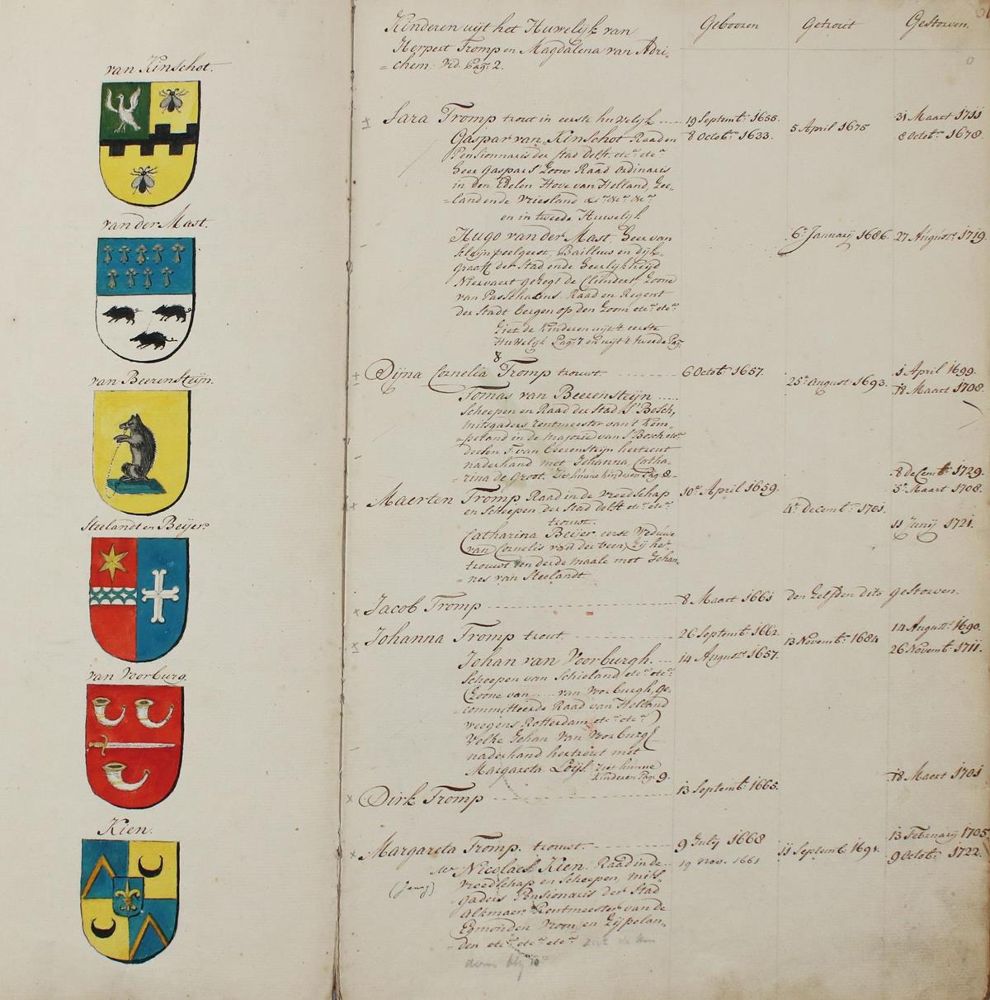 van Kinschot.
van der Mast.
van Beerensteijn.
Steelandt en Beijer.
van Voorburg.
Kien.
Kinderen uijt het Huwelijk van
Herpert Tromp en Magdalena van Adri-
=chem. Vid. Pag: 2.
Gebooren Getrout Gestorven.
Sara Tromp trout in eerste huwelijk 19 Septemb: 1655. 31 Maart 1711
Gaspar van Kinschot Raad en 8 Octob: 1633. 5 April 1675 8 Octob: 1678.
Pensionnaris der stad Delft, etc: etc:
Heer Gaspars Zoon Raad Ordinaris
in den Edelen Hove van Holland Zee-
=land ende Vriesland &c: &c: &c:
en in tweede Huwelijk
Hugo van der Mast, Heer van 6 January 1686 27 August 1729.
Baillius en dijk-
graaff der Stad ende Heerlijkheijd
Niervaert gesegt de Clundert Zoone
van Raad en Regent
der Stadt bergen op den Zoom etc: etc:
Ziet de Kinderen uijt 't eerste
Huwelijk Pag: 7 en uijt 't tweede Pag:
8
Dijna Cornelia Tromp trouwt 6 Octob: 1657. 25 August 1693. 1 April 1699.
Tomas van Beerensteijn 18 Maart 1708.
Scheepen en Raad der Stad S' Bosch,
mitsgaders Rentmeester van 't Kem-
=peland in de majorie van S' Bosch etc:
van Beerensteijn hertrout
naderhand met Johanna Catha-
=rina de Groot. Pag: 8. 8 decemb: 1729.
Maerten Tromp Raad in de Vroedschap 10 April 1659. 5 Maart 1708.
en Scheepen der Stad Delft etc: etc: 4 decemb: 1701.
trouwt.
Catharina Beijer eerst Weduwe 11 Junij 1721.
van Cornelis van der Zij her-
trouwt ten derde maale met Johan-
=nes van Steelandt
Jacob Tromp 8 Maart 1661 den Zelfden dito gestorven.
Johanna Tromp trout 26 Septemb: 1662. 13 Novemb: 1684 14 August: 1690.
Johan van Voorburgh. 14 August: 1657. 26 Novemb: 1711.
Scheepen van Schieland etc: etc:
Zoone van van Voorburgh, Ge-
=committeerde Raad van Holland
weegens Rotterdam etc: etc:
Welke Johan van Voorburg
naderhand hertrout met
Margareta Loijs. Ziet hunne
Kinderen Pag: 9. 18 Maert 1701
Dirk Tromp 13 Septemb: 1665.
Margareta Tromp. trouwt. 9 July 1668 11 Septemb: 1691. 13 February 1705.
Mr Nicolaes Kien. Raad in de 19 Nov. 1661 9 Octob: 1722.
vroedschap en Scheepen, mits-
gaders Pensionaris der Stad
Alkmaer Rentmeester van de
Egmonden Vroon en Zijpelan-
den etc: etc: etc: